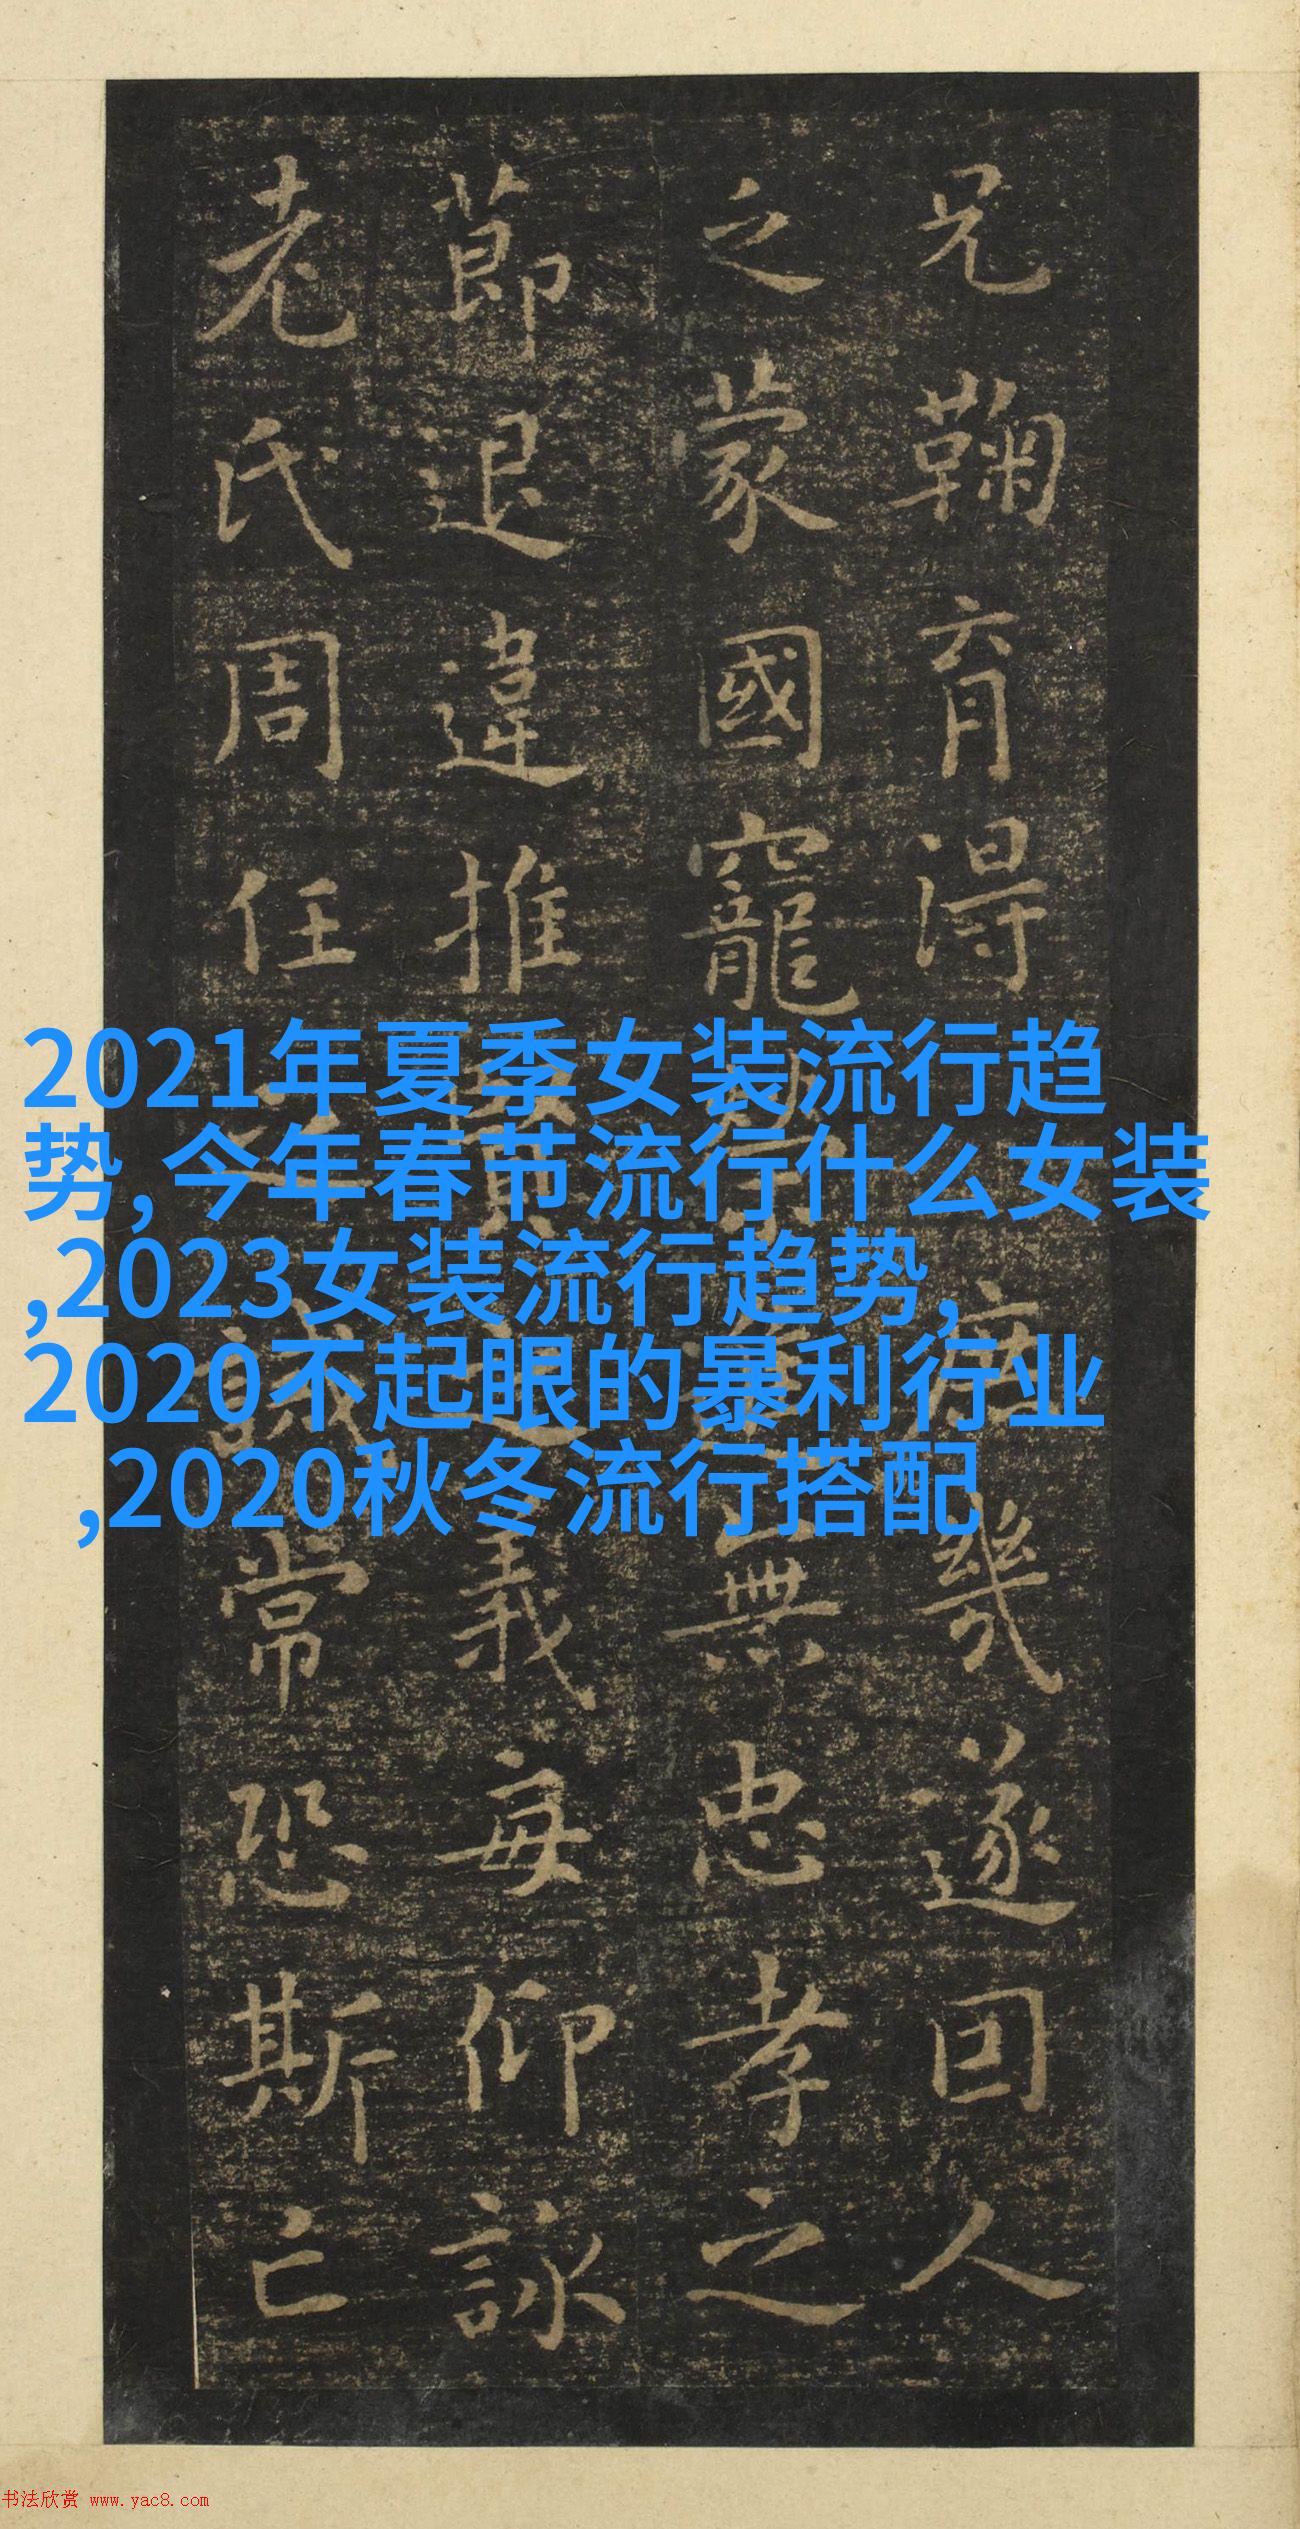 兄鞠育淂庶幾遂因人
乏蒙國寵榮進無忠孝之
節退違推賢之義每仰詠
老氏周任之誡常恐斯亡
2021年夏季女装流行趋
势,今年春节流行什么女装
,2023女装流行趋势,
2020不起眼的暴利行业
,2020秋冬流行搭配
书法欣赏 www.yac8.com